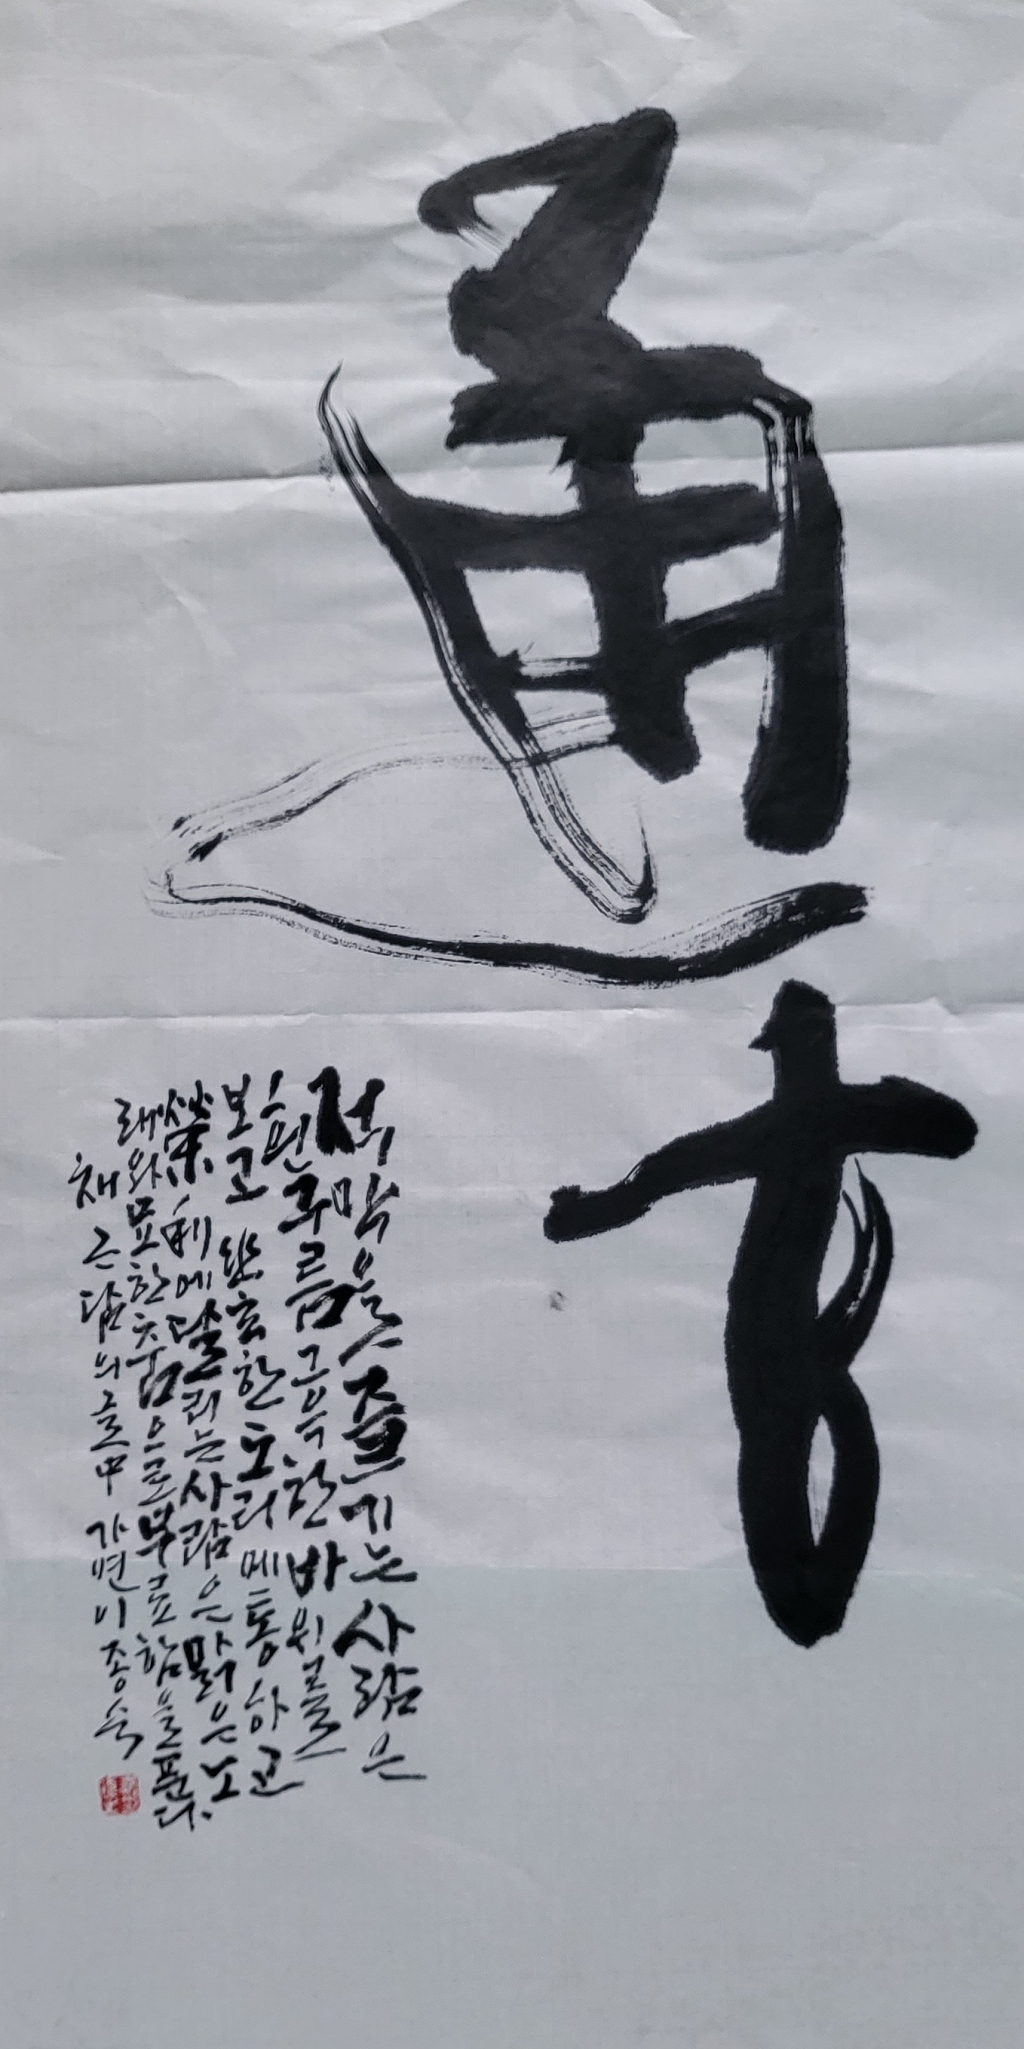 通玄
적막을 즐기는 사람은
흰구름 그윽한 바위를
보고 幽玄한 도리에 통하고
榮利에 달리는 사람은 맑은 노
래와 묘한 춤으로 무료함을 푼다.
채근담의 글 中 가변 이종숙